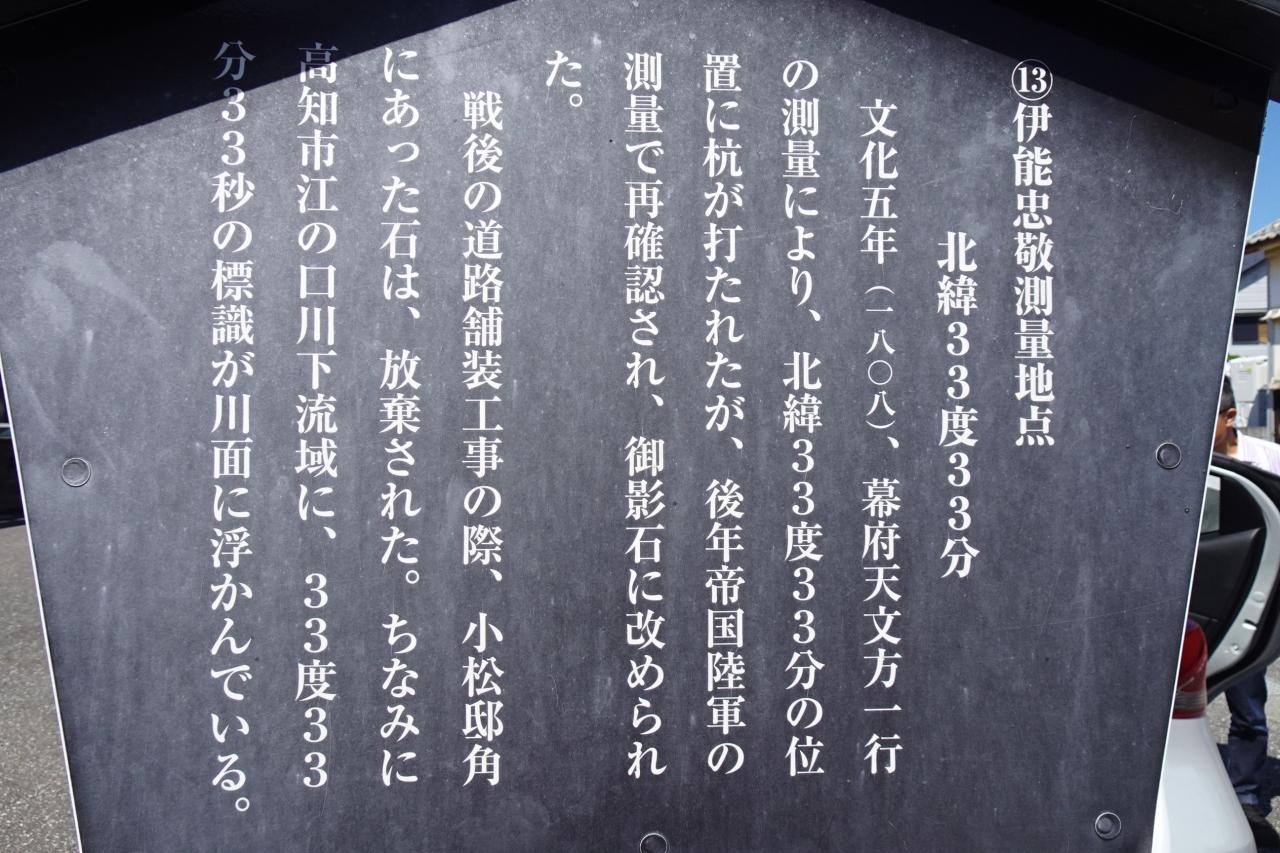 ⑬伊能忠敬測量地点
北緯33度33分
文化五年（一八〇八）、幕府天文方一行
の測量により、北緯33度33分の位
置に杭が打たれたが、後年帝国陸軍の
測量で再確認され、御影石に改められ
た。
戦後の道路舗装工事の際、小松邸角
にあった石は、放棄された。ちなみに
高知市江の口川下流域に、33度33
分33秒の標識が川面に浮かんでいる。